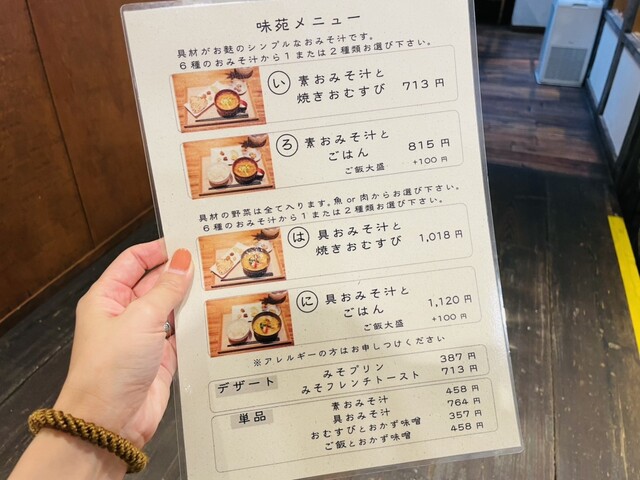 味苑メニュー
具材がお麩のシンプルなおみそ汁です。
6種のおみそ汁から1または2種類お選び下さい。
い 素おみそ汁と
焼きおむすび 713円
ろ 素おみそ汁と
ごはん 815円
ご飯大盛 +100円
具材の野菜は全て入ります。魚or肉からお選び下さい。
6種のおみそ汁から1または2種類お選び下さい。
は 具おみそ汁と
焼きおむすび 1,018円
に 具おみそ汁と
ごはん 1,120円
ご飯大盛 +100円
※アレルギーの方はお申しつけください
デザート
みそプリン 387円
みそフレンチトースト 713円
単品
素おみそ汁 458円
具おみそ汁 764円
おむすびとおかず味噌 357円
ご飯とおかず味噌 458円